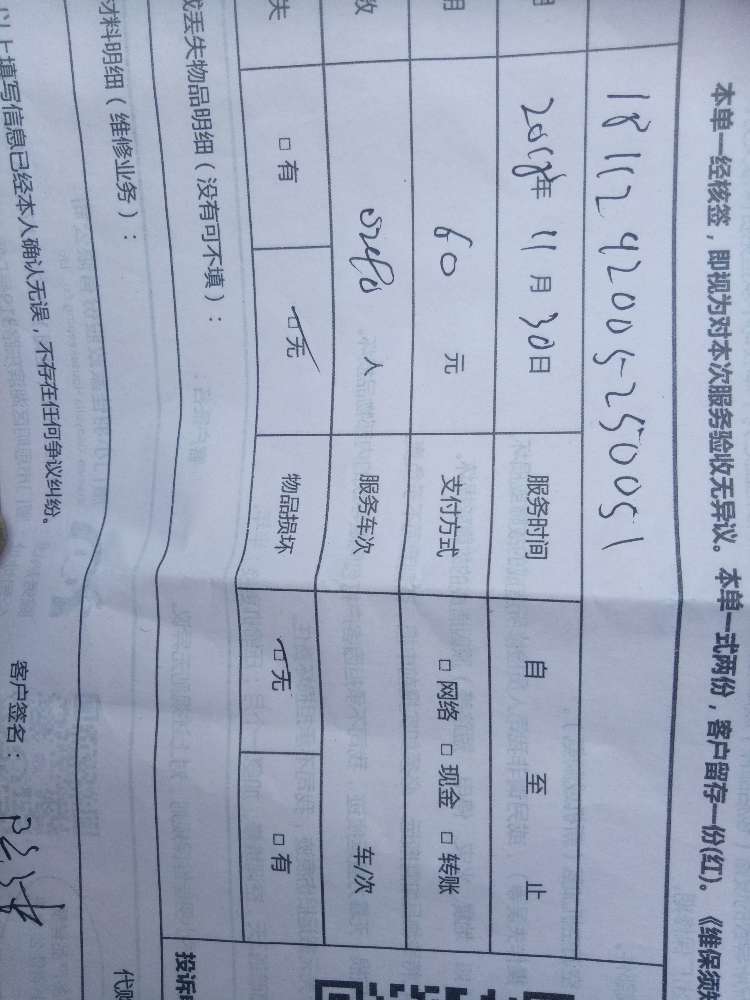 本单一经核签，即视为对本次服务验收无异议。本单一式两份，客户留存一份(红)。《维保须知
1811292005250051
2018年 11月 30日 服务时间 自 至 止
60 元 支付方式 □ 网络 □ 现金 □ 转账
人 服务车次 车/次
失 □ 有 □ 无 物品损坏 □ 无 □ 有
丢失物品明细（没有可不填）：
投诉
材料明细（维修业务）：
代
以上填写信息已经本人确认无误，不存在任何争议纠纷。
客户签名：